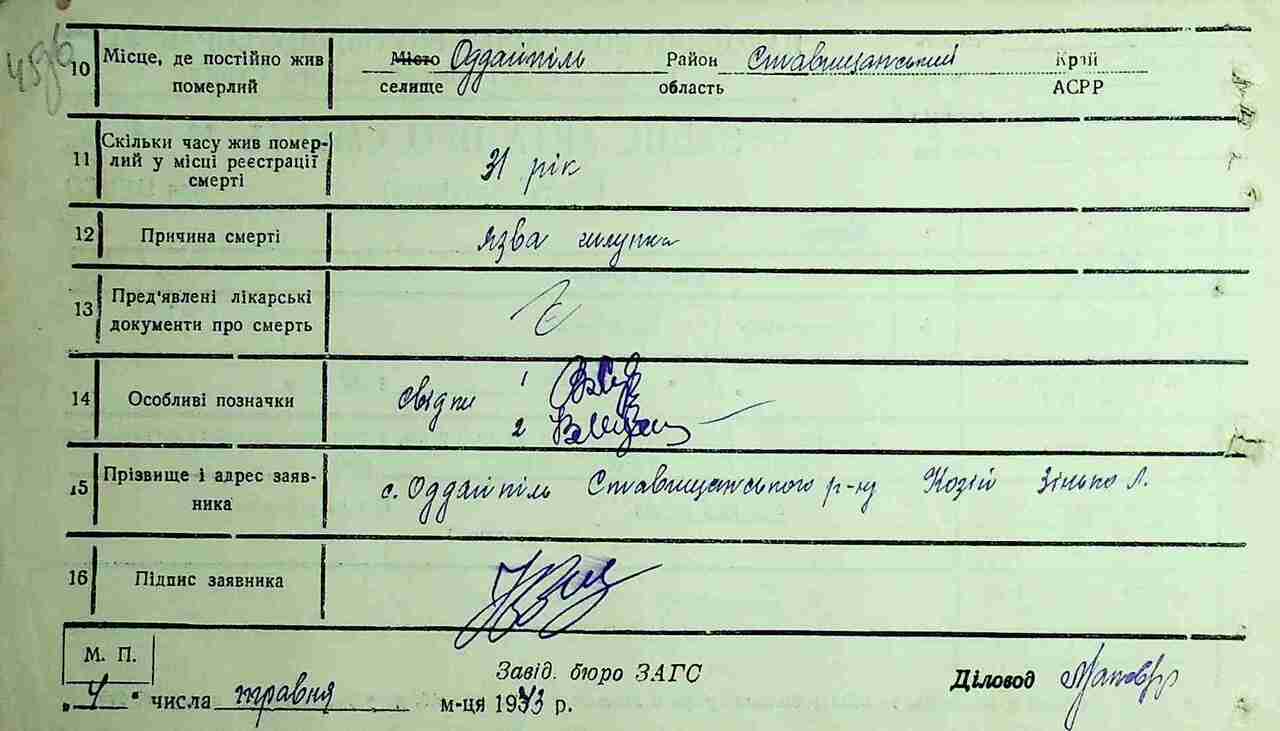 10 Місце, де постійно жив померлий Місто селище Оддайпіль Район область Ставищанський Край АСРР
11 Скільки часу жив помер-
лий у місці реєстрації
смерті 31 рік
12 Причина смерті язва шлунка
13 Пред'явлені лікарські
документи про смерть Є
14 Особливі позначки свідки 1
2
15 Прізвище і адрес заяв-
ника с. Оддайпіль Ставищанського р-ну Козій Зінько Л.
16 Підпис заявника
М. П.
Завід. бюро ЗАГС Діловод
„4" числа травня м-ця 1933 р.